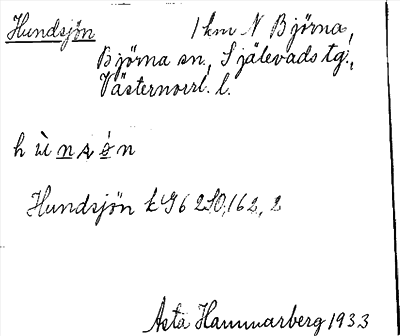 Hundsjön 1 km N Björna,
Björna sn, Själevads tg.,
Västernorrl. l.
h ù n s ø n
Hundsjön k G6 2SO, 162, 2
Asta Hammarberg 1933